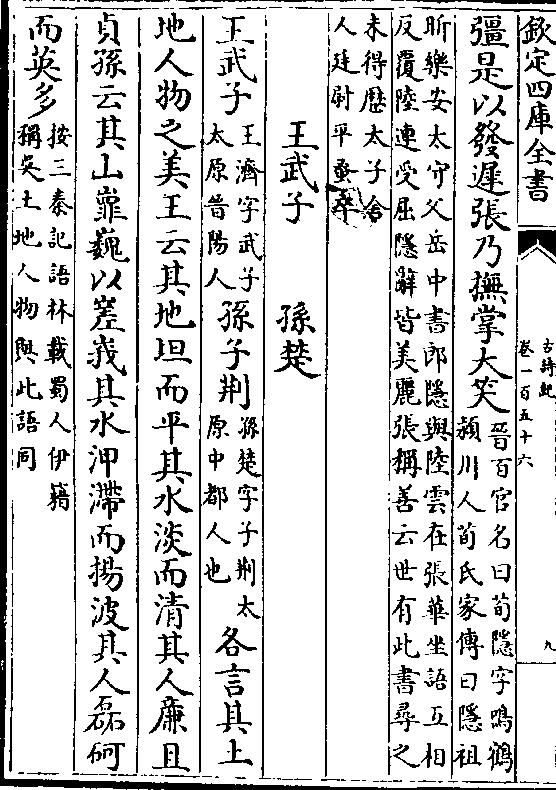 欽定四庫全書
古詩紀
卷一百五十六
九
彊是以發遲張乃撫掌大笑晉百官名曰荀隱字鳴鶴
潁川人荀氏家傳曰隱祖
昕樂安太守父岳中書郎隱與陸雲在張華坐語互相
反覆陸連受屈隱辭皆美麗張稱善云世有此書尋之
未得歷太子舍
人廷尉平蚤卒
王武子 孫楚
王武子王濟字武子
太原晉陽人孫子荆孫楚字子荆太
原中都人也各言其土
地人物之美王云其地坦而平其水淡而清其人廉且
貞孫云其山嶵巍以嵳峩其水㳌㵝而揚波其人磊砢
而英多按三秦記語林載蜀人伊籍
稱吳土地人物與此語同